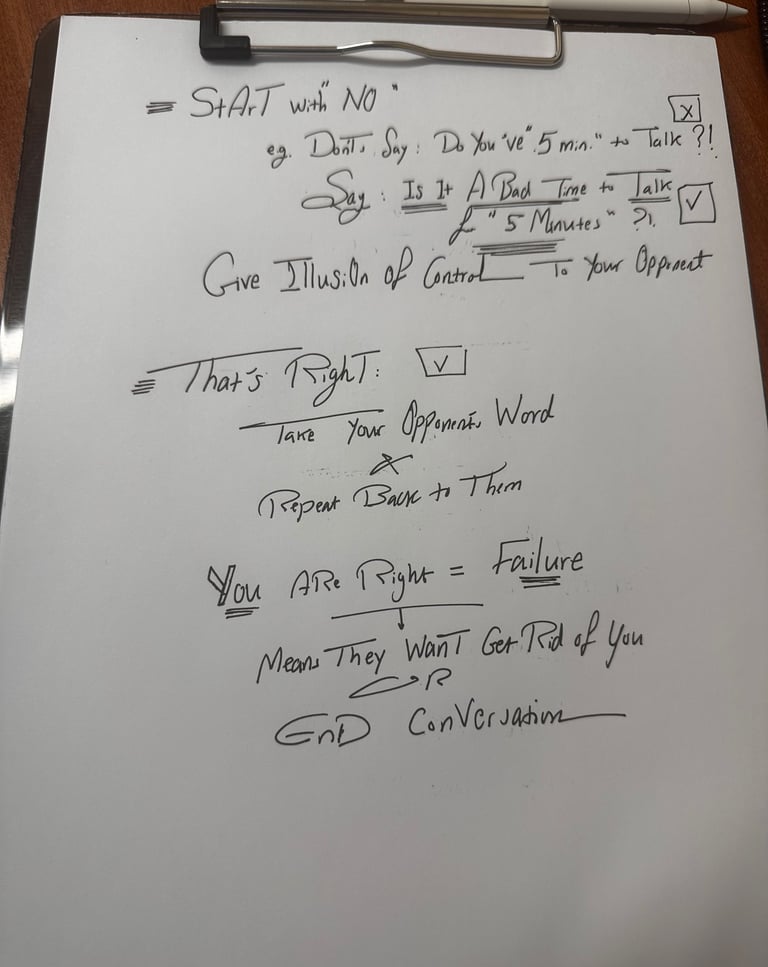 = StArT with "NO"
eg. Don't Say: Do You "ve" 5 min." to Talk ?! [x]
Say: Is It A Bad Time to Talk
f "5 Minutes" ?! [✓]
Give IllusiOn of Control To Your Opponent
= That's RighT: [✓]
Take Your Opponents Word
&
Repeat Back to Them
You ARe Right = Failure
↓
Means They WanT Get Rid of You
OR
EnD Conversation